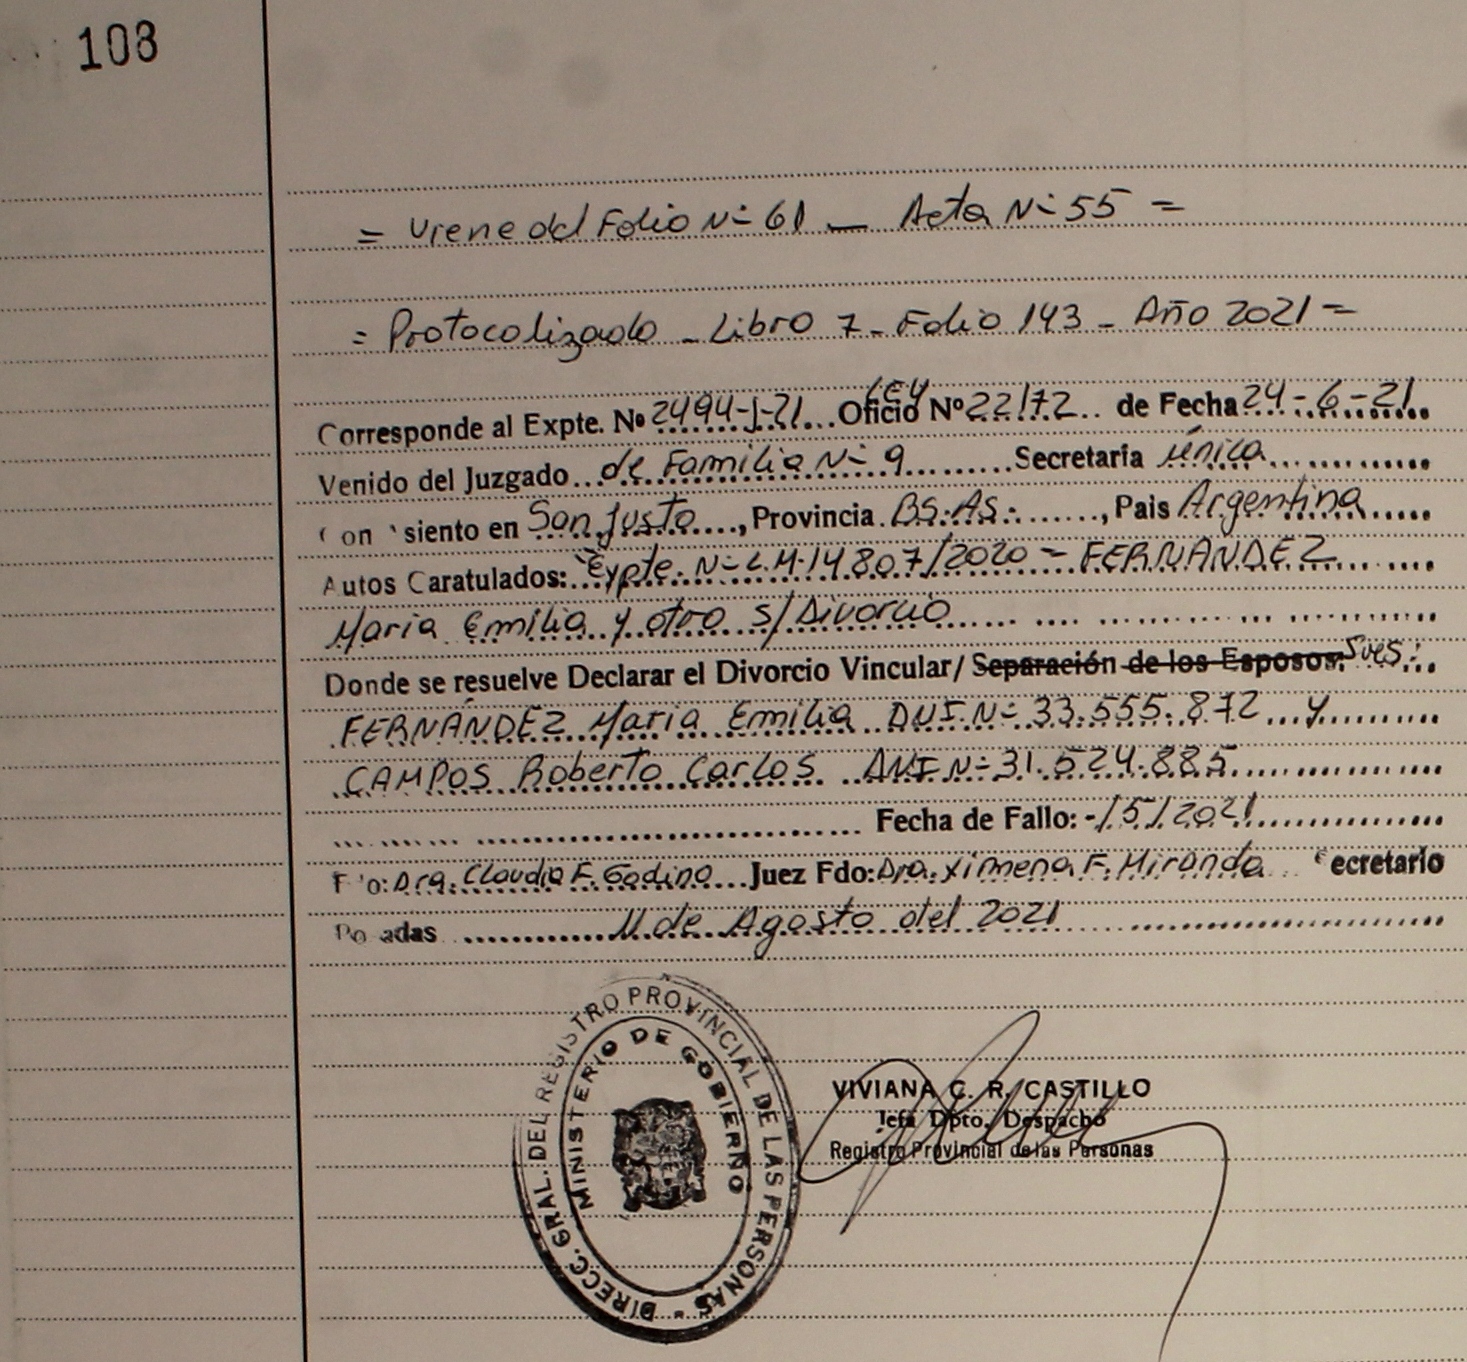 108
= Viene del Folio Nº 61 — Acta Nº 55 =
= Protocolizado - Libro 7 - Folio 143 - Año 2021 =
Corresponde al Expte. Nº 2494-J-21 Oficio LEY Nº 22172 de Fecha 24-6-21
Venido del Juzgado de Familia Nº 9 Secretaría única
Con siento en San Justo, Provincia BS. AS., Pais Argentina
Autos Caratulados: "Expte. Nº L.M. 14.807/2020 - FERNANDEZ
Maria Emilia y otro s/ Divorcio
Donde se resuelve Declarar el Divorcio Vincular/ Separación de los Esposos:
FERNÁNDEZ Maria Emilia DNI Nº 33.555.872 y
CAMPOS Roberto Carlos DNI Nº 31.524.885
Fecha de Fallo: -/5/2021
F o: Dra. Claudia F. Godino Juez Fdo: Dra. Ximena F. Miranda ecretario
Po adas 11 de Agosto del 2021
DIRECC. GRAL. DEL REGISTRO PROVINCIAL DE LAS PERSONAS -
MINISTERIO DE GOBIERNO
VIVIANA C. R. CASTILLO
Jefa Dpto. Despacho
Registro Provincial de las Personas